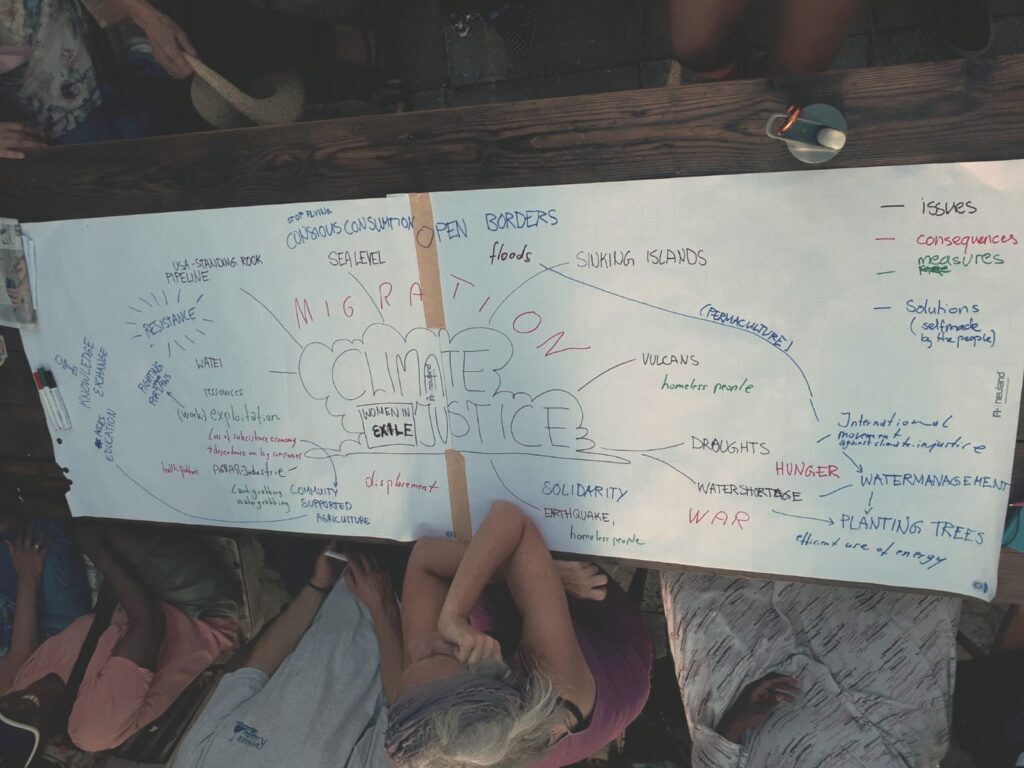 STOP FLYING
CONSCIOUS CONSUMPTION
OPEN BORDERS
issues
consequences
measures
Solutions
(selfmade
by the people)
USA-STANDING ROCK
PIPELINE
SEA LEVEL
floods
SINKING ISLANDS
MIGRATION
RESISTANCE
(PERMACULTURE)
KNOWLEDGE
EXCHANGE
EDUCATION
WATER
ressources
(work) exploitation
Loss of subsistence economy
→ dependence on big companies
AGRAR-Industrie
Landgrabbing
watergrabbing
COMMUITY
SUPPORTED
AGRICULTURE
CLIMATE
JUSTICE
WOMEN IN
EXILE
neuland
displacement
VULCANS
homeless people
DROUGHTS
HUNGER
WATERSHORTAGE
WAR
SOLIDARITY
EARTHQUAKE,
homeless people
International
movement
against climate injustice
WATERMANAGEMENT
PLANTING TREES
efficient use of energy
neuland